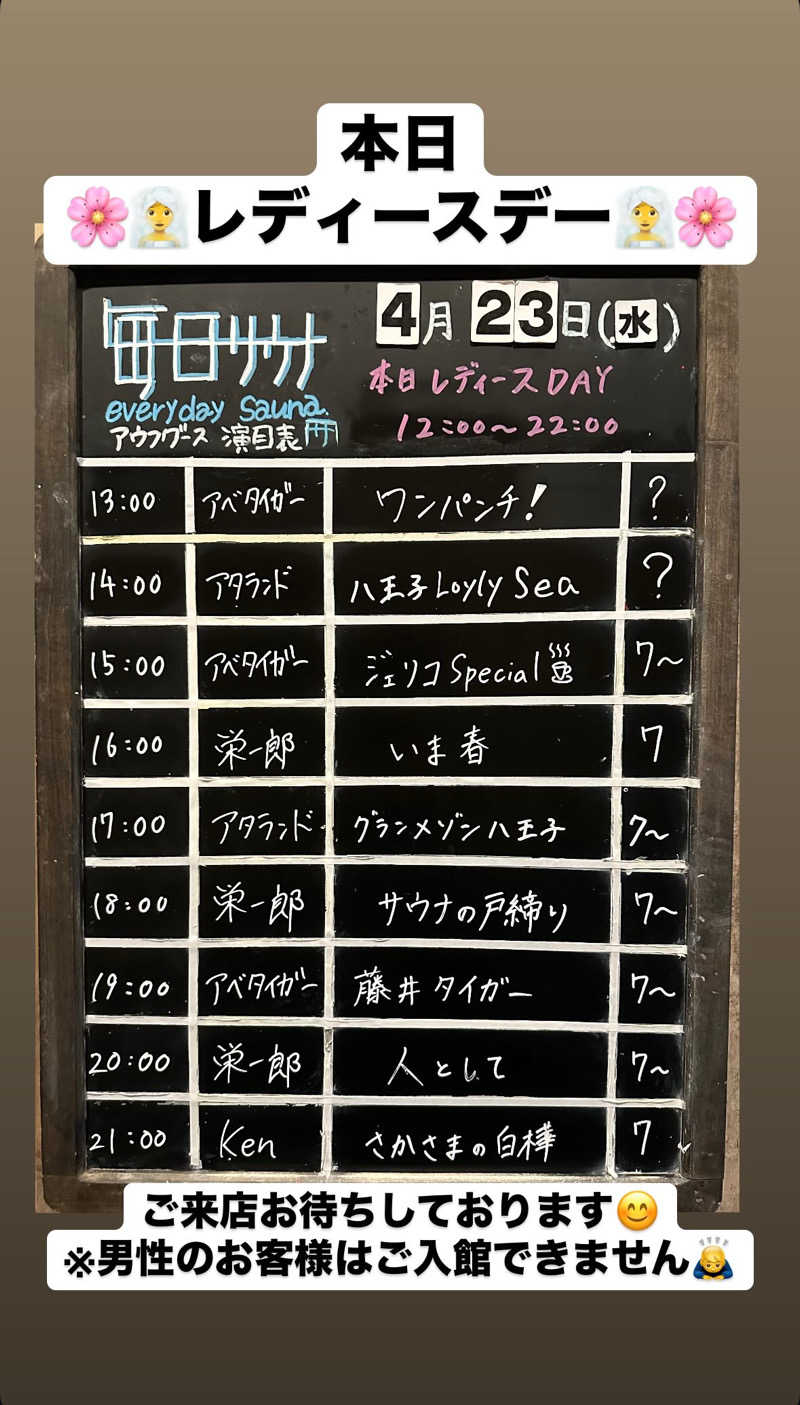 本日
🌸👰レディースデー👰🌸
毎日サウナ
4月23日(水)
everyday sauna.
本日レディースDAY
アウフグース 演目表
12:00～22:00
13:00 アベタイガー ワンパンチ! ?
14:00 アタランド 八王子Loyly Sea ?
15:00 アベタイガー ジェリコSpecial 7～
16:00 栄一郎 いま春 7
17:00 アタランド グランメゾン八王子 7～
18:00 栄一郎 サウナの戸締り 7～
19:00 アベタイガー 藤井タイガー 7～
20:00 栄一郎 人として 7～
21:00 Ken さかさまの白樺 7
ご来店お待ちしております😊
※男性のお客様はご入館できません🙇